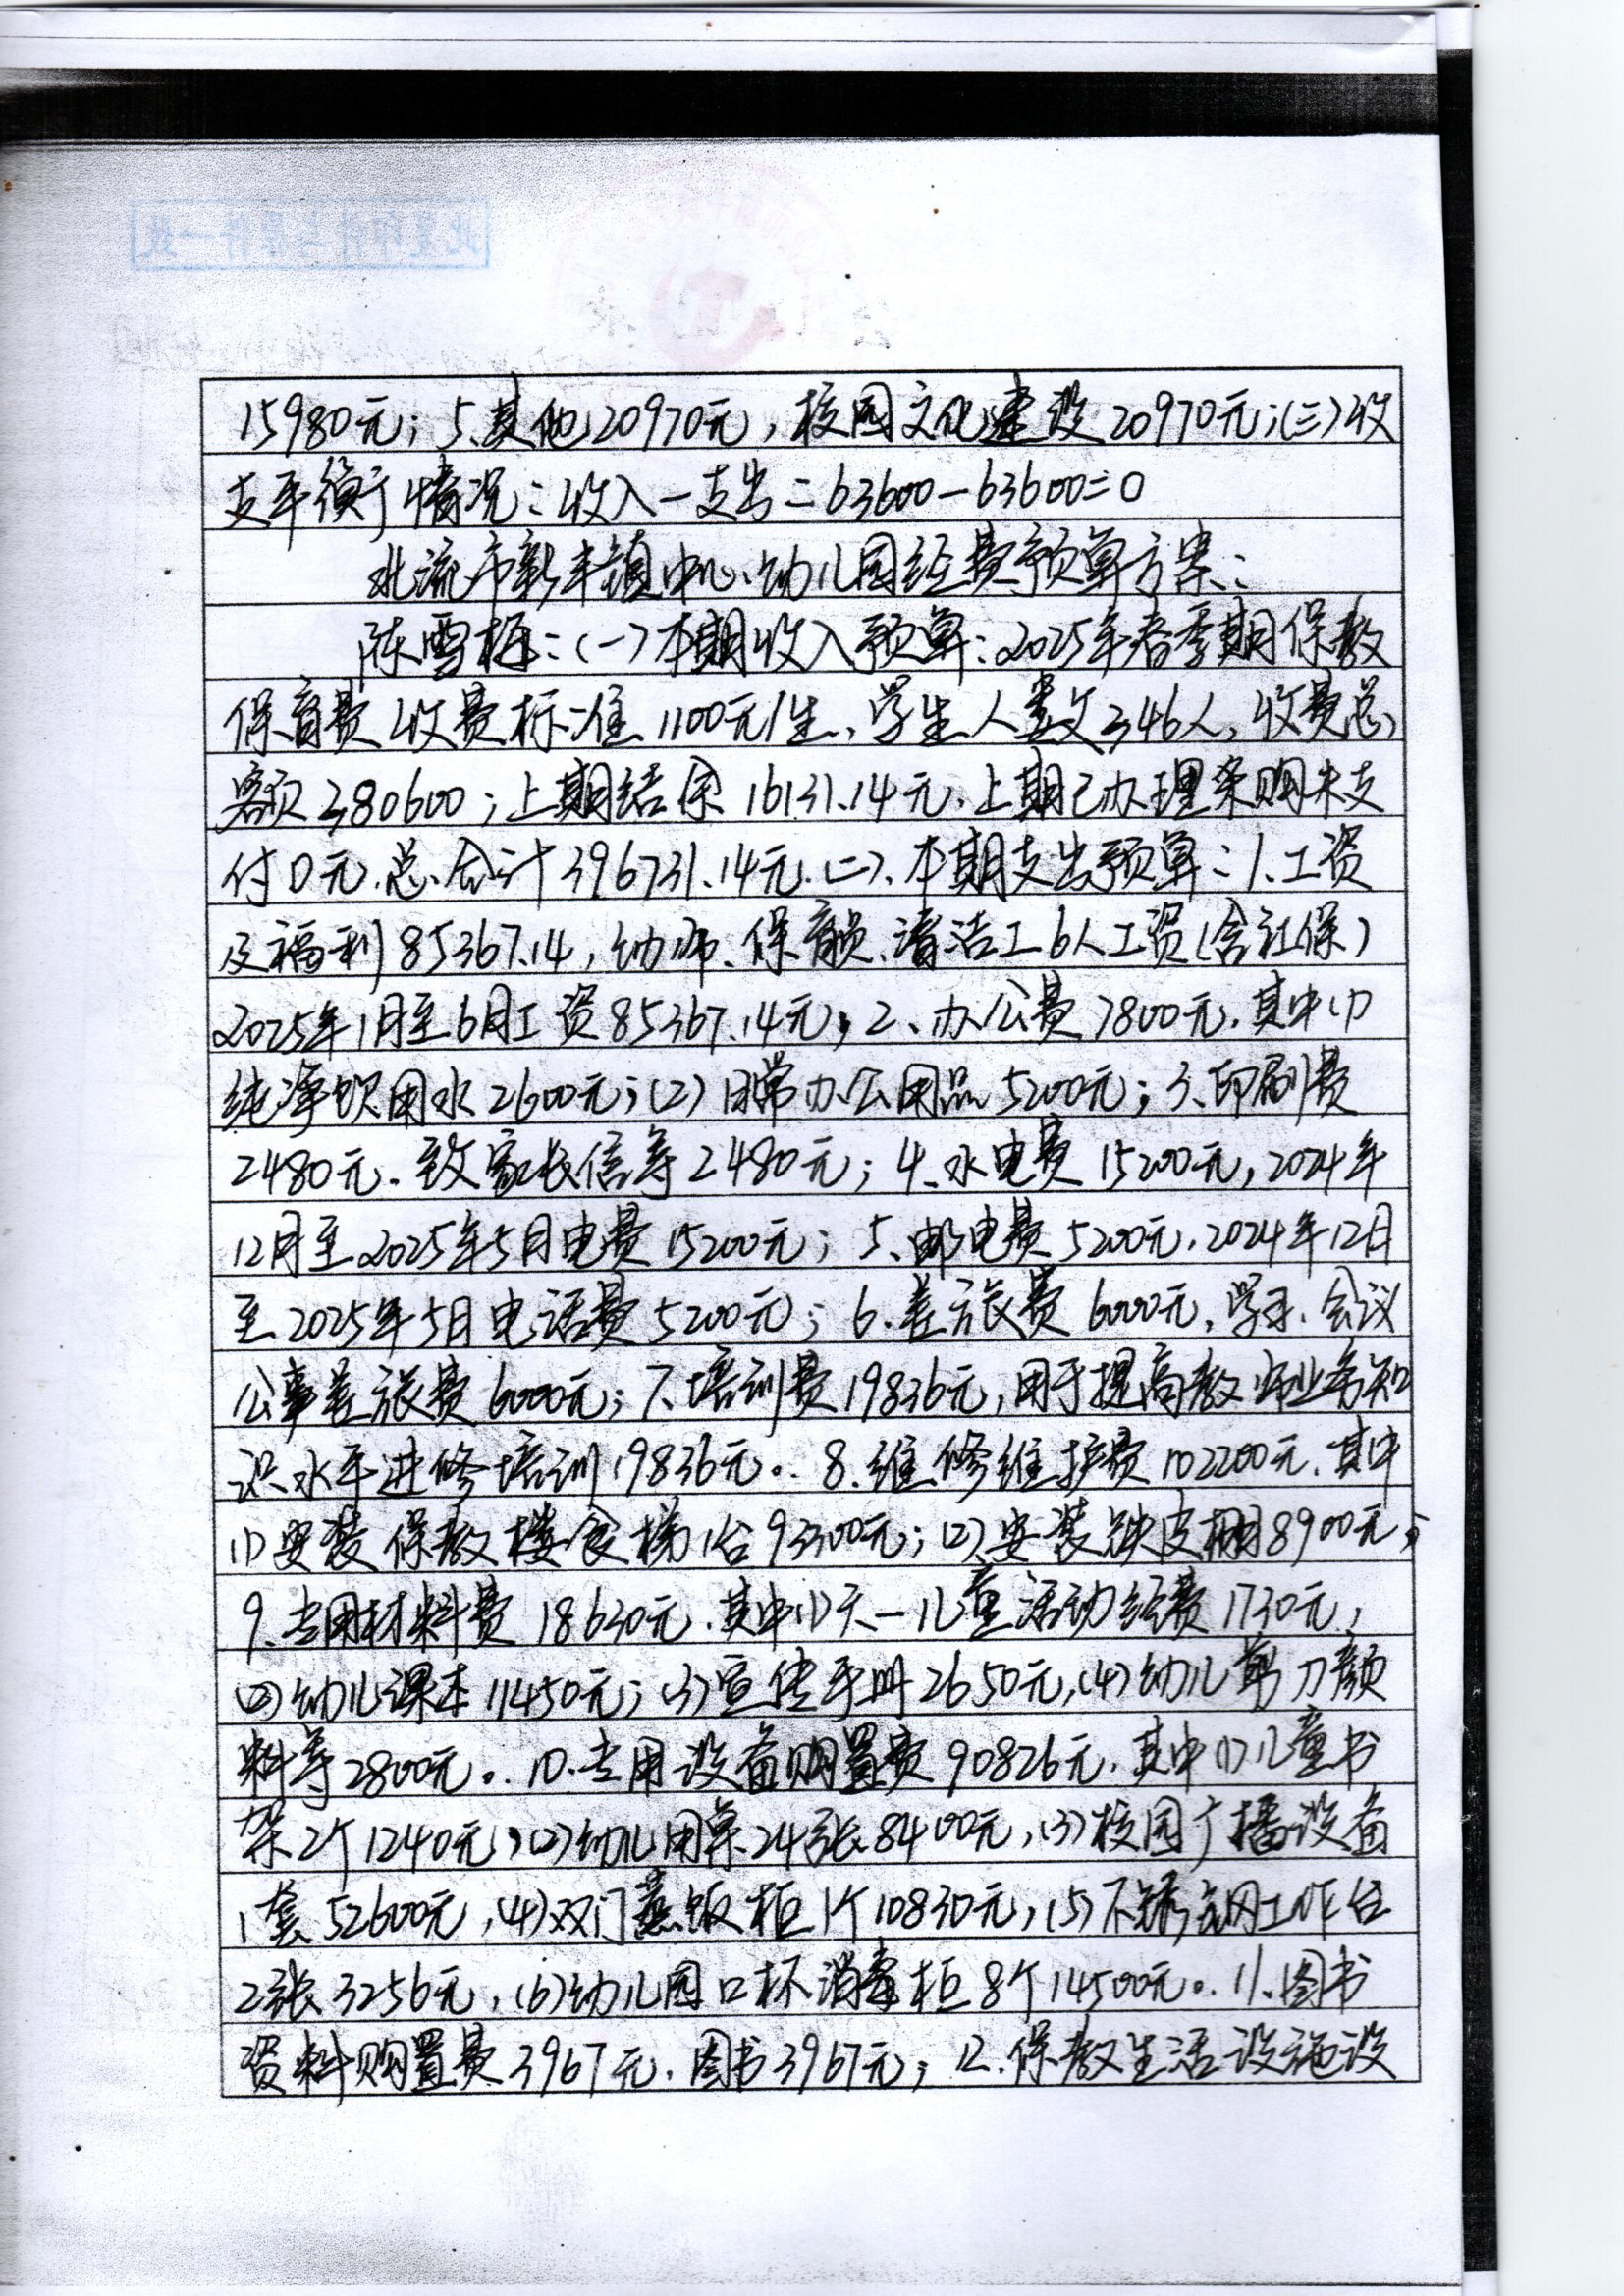 15980元；5、其他20970元，校园文化建设20970元；(三)收
支平衡情况：收入-支出=63600-63600=0
北流市新丰镇中心幼儿园经费预算方案：
陈雪梅：(一)本期收入预算：2025年春季期保教
保育费收费标准1100元/生，学生人数346人，收费总
额380600；上期结余16131.14元，上期已办理采购未支
付0元.总合计396731.14元.(二)、本期支出预算：1、工资
及福利85367.14，幼师、保育员、清洁工6人工资(含社保)
2025年1月至6月工资85367.14元；2、办公费7800元.其中(1)
纯净饮用水2600元；(2)日常办公用品5200元；3、印刷费
2480元.致家长信等2480元；4、水电费15200元，2024年
12月至2025年5月电费15200元；5、邮电费5200元.2024年12月
至2025年5月电话费5200元；6.差旅费6000元，学习、会议
公事差旅费6000元；7、培训费19836元，用于提高教师业务知
识水平进修培训19836元。8.维修维护费102200元.其中
(1)安装保教楼食梯1台93300元；(2)安装铁皮棚8900元；
9、专用材料费18630元.其中(1)六一儿童活动经费1730元，
(2)幼儿课本11450元；(3)宣传手册2650元，(4)幼儿剪刀颜
料等2800元。10.专用设备购置费90826元.其中(1)儿童书
架2个1240元；(2)幼儿用桌24张8400元，(3)校园广播设备
1套52600元，(4)双门蒸饭柜1个10830元，(5)不锈钢工作台
2张3256元，(6)幼儿园口杯消毒柜8个14500元。11、图书
资料购置费3967元.图书3967元；12.保教生活设施设